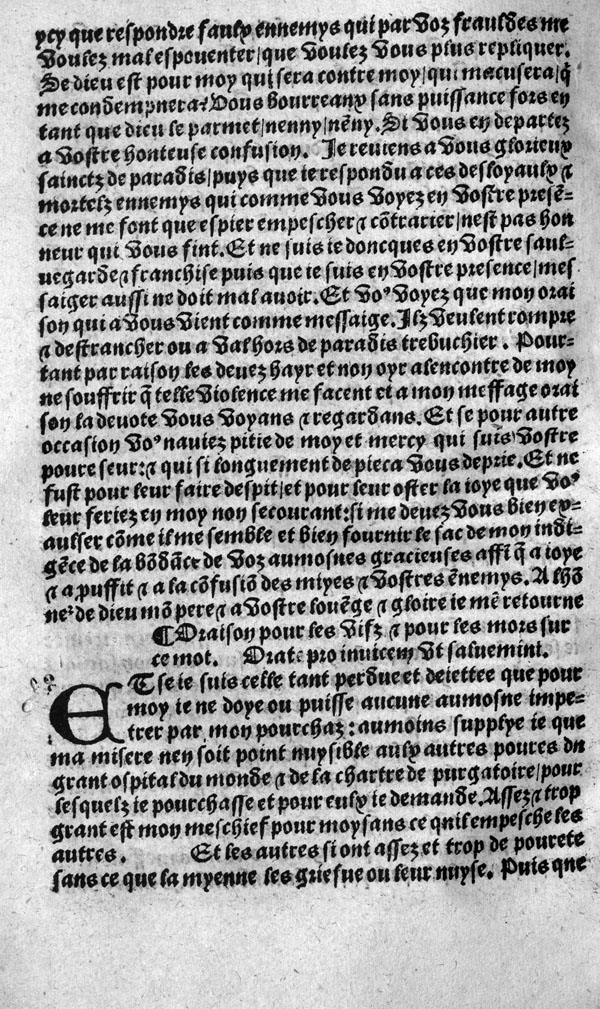 ycy que respondre faulx ennemys qui par voz frauldes me
voulez mal espouenter/que voulez vous plus repliquer.
Se dieu est pour moy qui sera contre moy/qui macusera/q̃
me condempnera? Vous bourreaux sans puissance fors en
tant que dieu le parmet/nenny/nẽny. Si vous en departez
a vostre honteuse confusion. Je reuiens a vous glorieux
sainctz de paradis/puys que ie respondu a ces desloyaulx ⁊
mortelz ennemys qui comme vous voyez en vostre presẽ-
ce ne me font que espier empescher ⁊ cõtrarier/nest pas hon
neur qui vous fint. Et ne suis ie doncques en vostre saul-
uegarde ⁊ franchise puis que ie suis en vostre presence/mes
saiger aussi ne doit mal auoir. Et voꝰ voyez que mon orai
son qui a vous vient comme messaige. Ilz veulent rompre
⁊ destrancher ou a val hors de paradis trebuchier. Pour-
tant par raison les deuez hayr et non oyr alencontre de moy
ne souffrir q̃ telle violence me facent et a mon message orai
son la deuote vous voyans ⁊ regardans. Et se pour autre
occasion voꝰ nauiez pitie de moy et mercy qui suis vostre
poure seur:⁊ qui si longuement de pieca vous deprie. Et ne
fust pour leur faire despit/et pour leur oster la ioye que voꝰ
leur feriez en moy non secourant:si me deuez vous bien ex-
aulser cõme il me semble et bien fournir le sac de mon indi-
gẽce de la bõdãce de voz aumosnes gracieuses affi q̃ a ioye
⁊ a ꝓuffit ⁊ a la cõfusiõ des miyes ⁊ vostres ẽnemys. A lhõ
neꝛ de dieu mõ pere ⁊ a vostre louẽge ⁊ gloire ie mẽ retourne
¶ Oraison pour les vifz ⁊ pour les mors sur
ce mot. Orate pro inuicem vt saluemini.
ET se ie suis celle tant perdue et deiettee que pour
moy ie ne doye ou puisse aucune aumosne impe-
trer par mon pourchaz: aumoins supplye ie que
ma misere nen soit point nuysible aulx autres poures du
grant ospital du monde ⁊ de la chartre de purgatoire/pour
lesquelz ie pourchasse et pour eulx ie demande. Assez ⁊ trop
grant est mon meschief pour moy sans ce quil empesche les
autres. Et les autres si ont assez et trop de pourete
sans ce que la myenne les griefue ou leur nuyse. Puis que